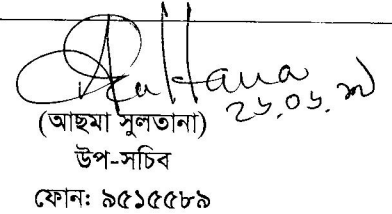 Sultana
২৬.০১.১৭
(আছমা সুলতানা)
উপ-সচিব
ফোন: ৯৫১৫৫৮৯